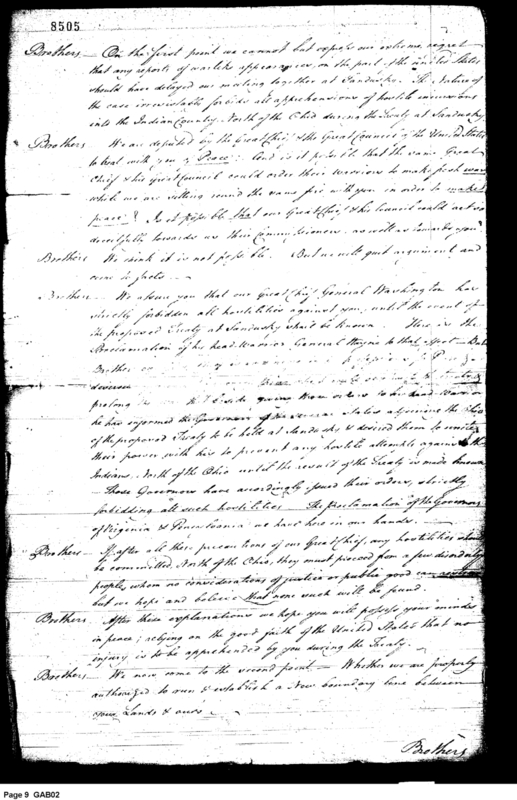 8505
Brothers — On the first point we cannot but express our extreme regret
that any reports of warlike appearances, on the part of the United States
should have delayed our meeting together at Sandusky. The Nature of
the case irresistably forbids all apprehensions of hostile incursions
into the Indian Country, North of the Ohio during the Treaty at Sandusky
Brothers — We are deputed by the Great Chief & the Great Council of the United States
to treat with you of Peace; And is it possible that the same Great
Chief & his Great Council could order their Warriors to make fresh war
while we are sitting round the same fire with you in order to make
peace? Is it possible that our Great Chief & his Council could act so
deceitfully towards us their Commissioners, as well as towards you
Brothers We think it is not possible. But we will quit argument and
come to facts —
Brothers — We assure you that our Great Chief General Washington has
strictly forbidden all hostilities against you, until the event of
the proposed Treaty at Sandusky shall be known. Here is the
Proclamation of his head Warrior General Wayne to that effect — But
Brothers our
desirous
he has informed the Governors of the several States adjoining the Ohio
of the proposed Treaty to be held at Sandusky & desired them to unite
their power with his to prevent any hostile attempts against the
Indians, North of the Ohio until the result of the Treaty is made known
— Those Governors have accordingly issued their orders, strictly
forbidding all such hostilities — The Proclamation of the Governors
of Virginia & Pensylvania we have here in our hands. —
Brothers — If after all these precautions of our Great Chief, any hostilities should
be committed North of the Ohio, they must proceed from a few disorderly
people, whom no considerations of justice or public good can restrain
but we hope and believe that none such will be found.
Brothers. After these explanations we hope you will possess your minds
in peace; relying on the good faith of the United States that no
injury is to be apprehended by you during the Treaty.
Brothers We now come to the second point — Whether we are properly
authorized to run & establish a New boundary line between
your Lands & ours —
Brothers
Page 9 GAB02